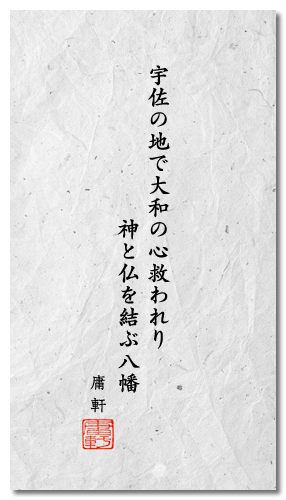 宇佐の地で大和の心救われり
神と仏を結ぶ八幡
庸軒